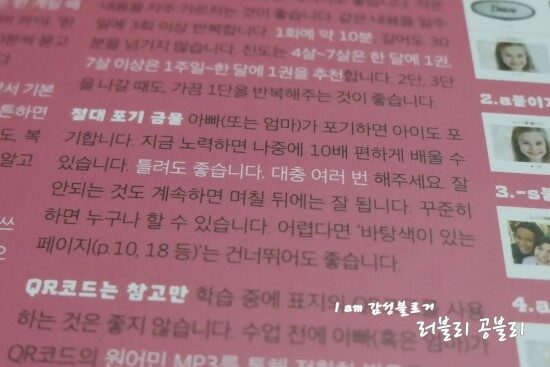 을 자주 가르치는 것이 좋습니다. 같은 내용을 일주
일에 3회 이상 반복합니다. 1회에 약 10분, 길어도 30
분을 넘기지 않습니다. 진도는 4살~7살은 한 달에 1권,
7살 이상은 1주일~한 달에 1권을 추천합니다. 2단, 3단
을 나갈 때도, 가끔 1단을 반복해주는 것이 좋습니다.
절대 포기 금물 아빠(또는 엄마)가 포기하면 아이도 포
기합니다. 지금 노력하면 나중에 10배 편하게 배울 수
있습니다. 틀려도 좋습니다. 대충 여러 번 해주세요. 잘
안되는 것도 계속하면 며칠 뒤에는 잘 됩니다. 꾸준히
하면 누구나 할 수 있습니다. 어렵다면 '바탕색이 있는
페이지(p.10, 18 등)'는 건너뛰어도 좋습니다.
QR코드는 참고만 학습 중에 표지의 사용
하는 것은 좋지 않습니다. 수업 전에 아빠(혹은 엄마)가
QR코드의 원어민 MP3를 통해
한 게임 때
10분씩 묻고
기본
하면
복
알고
쓰
오
2.a붙이기
3.-s붙
4.a
I am 감성블로거
러블리 공블리